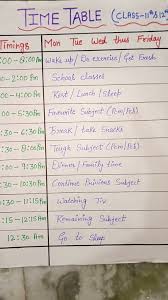 TIME TABLE (CLASS-11th & 12th
Timings Mon Tue Wed thus Friday
00-8:00 Am Wake up / Do exercise / Get Fresh
00-2:00 Pm School classes
Rest / Lunch / Sleep
Favourite Subject (Pcm/Pcb)
Break / take Snacks
Tough Subject (Pcm/Pcb)
Dinner / Family time
Continue Previous Subject
Watching Tv
:15-12:15 Am Remaining Subject
12:30 Am Go to Sleep